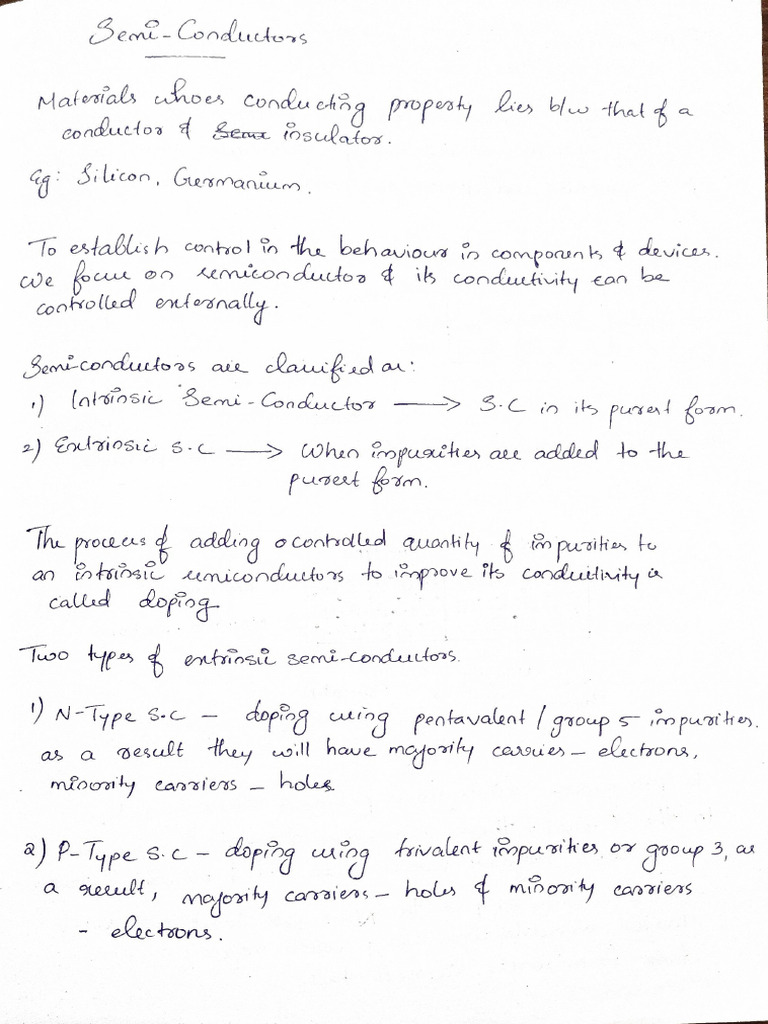 Semi-Conductors
Materials whoes conducting property lies b/w that of a
conductor & insulator.
Eg: Silicon, Germanium.
To establish control in the behaviour in components & devices.
we focus on semiconductor & its conductivity can be
controlled externally.
Semi-conductors are classified as:
1) Intrinsic Semi-Conductor ⟶ S.C in its purest form.
2) Extrinsic S.C ⟶ when impurities are added to the
purest form.
The process of adding a controlled quantity of impurities to
an intrinsic semiconductors to improve its conductivity is
called doping
Two types of extrinsic semi-conductors.
1) N-Type S.C – doping using pentavalent / group 5 impurities.
as a result they will have majority carries – electrons,
minority carriers – holes.
2) P-Type S.C – doping using trivalent impurities or group 3, as
a result, majority carriers – holes & minority carriers
- electrons.